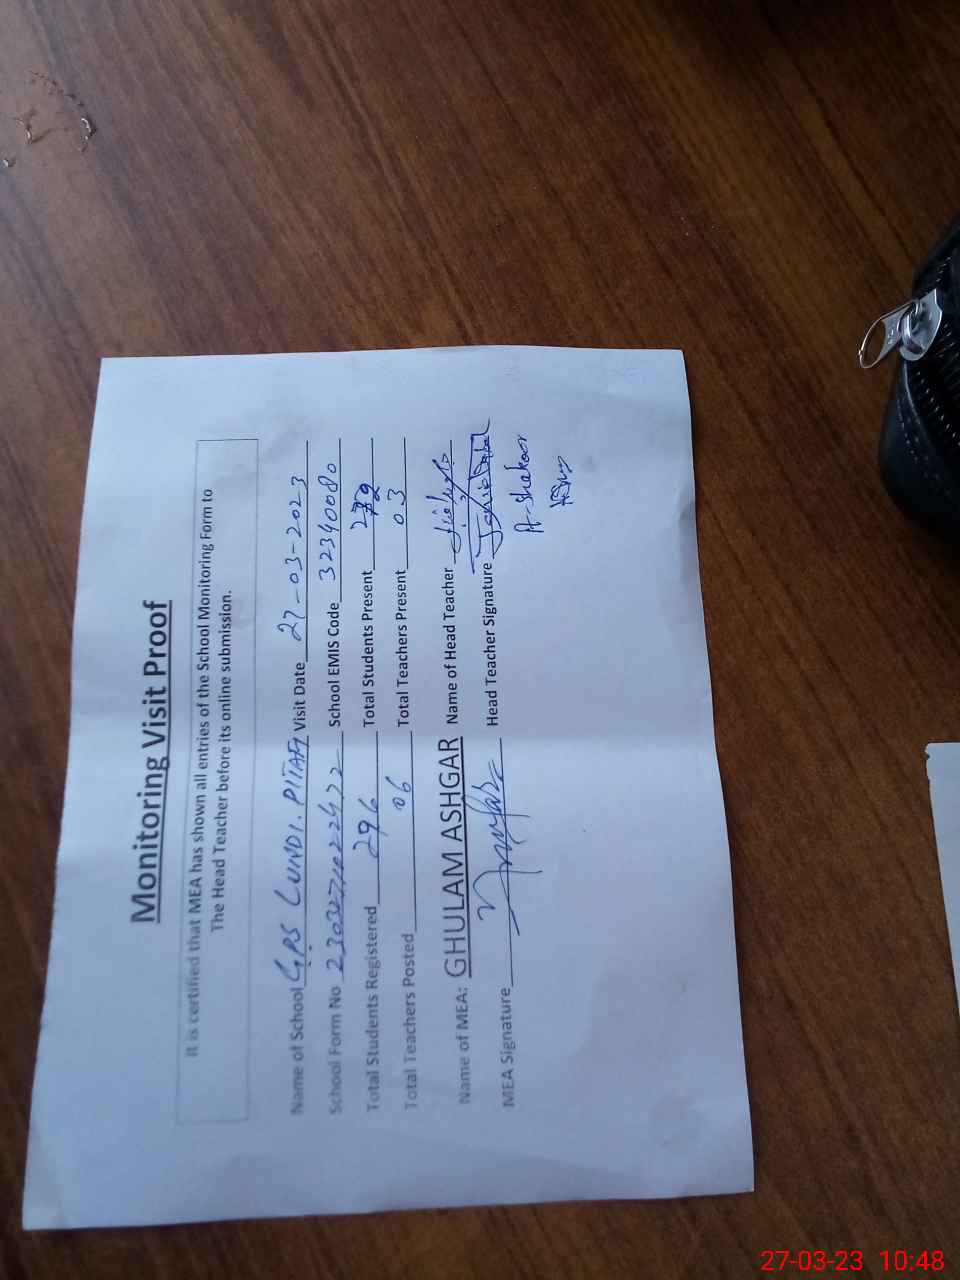 Monitoring Visit Proof
It is certified that MEA has shown all entries of the School Monitoring Form to
The Head Teacher before its online submission.
Name of School GPS LUNDI. PITAFI Visit Date 27-03-2023
School Form No School EMIS Code 32340080
Total Students Registered 296 Total Students Present
Total Teachers Posted 06 Total Teachers Present 03
Name of MEA: GHULAM ASHGAR Name of Head Teacher
MEA Signature Head Teacher Signature
A-Shakoor
27-03-23 10:48